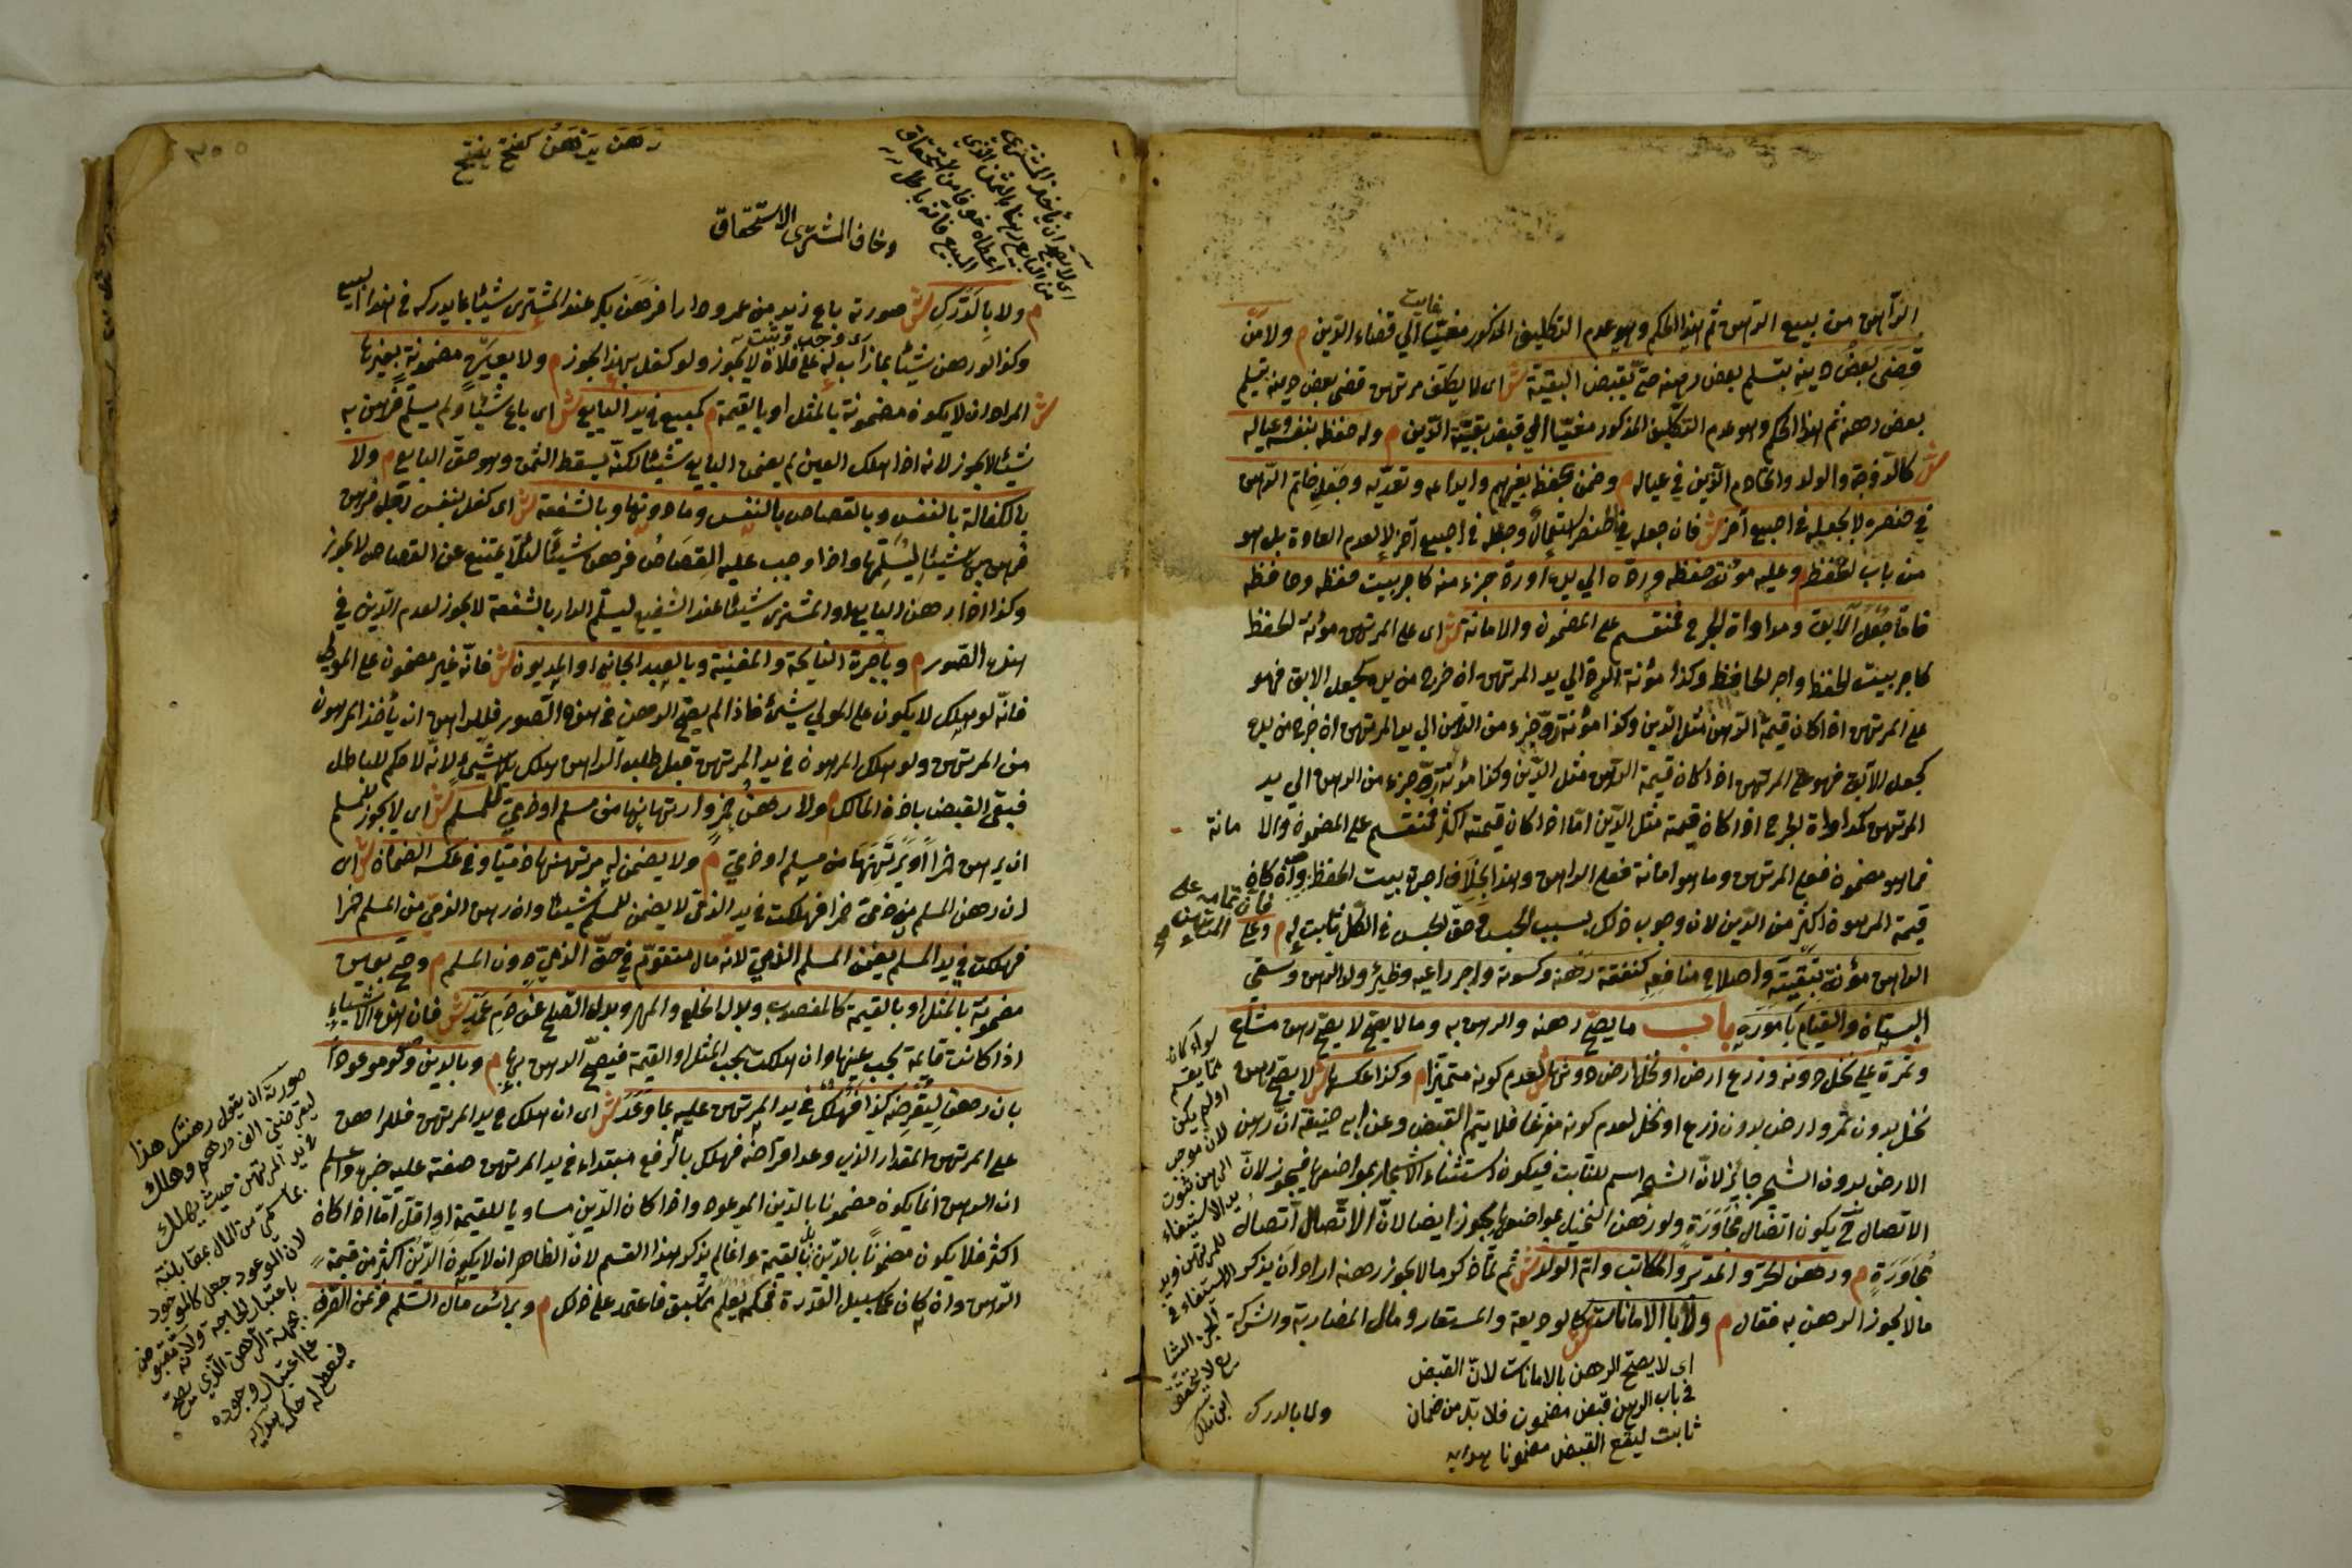 الراهن من بيع الرهن ثم هذا الحكم وهو عدم التكليف المذكور مغيّا الي قضاء الدين م ولا من
غاية
قضى بعض دينه بتسلم بعض رهنه حتى يقبض البقية ش اى لا يكلف مرتهن قضى بعض دينه بتسليم
بعض رهنه ثم هذا الحكم وهو عدم التكليف المذكور مغيّا الي قبض بقية الدين م وله حفظه بنفسه وعياله
ش كالزوجة والولد والخادم الذين في عياله م وضمن بحفظ بغيرهم وايداعه وتعديه وجعل خاتم الرهن
في خنصره لا بجعله في اصبع آخر ش فان جعله في الخنصر استعمال وجعله في اصبع آخر لا لعدم العادة بل هو
من باب الحفظ م وعليه مؤنة حفظه ورده الي يده او ردّ جزء منه كاجر بيت حفظه وحافظه
فاما جعل الآبق ومداواة الجرح فمنقسم على المضمون والامانة ش اى على المرتهن مؤنة الحفظ
كاجر بيت الحفظ واجر الحافظ وكذا مؤنة الرد الي يد المرتهن ان خرج من يده كجعل الابق فهو
على المرتهن اذا كان قيمة الرهن مثل الدين وكذا مؤنة ردّ جزء من الرهن الي يد المرتهن ان خرج من يده
كجعل الآبق فهو على المرتهن اذا كان قيمة الرهن مثل الدين وكذا مؤنة ردّ جزء من الرهن الي يد
المرتهن كمداواة الجرح اذا كان قيمته مثل الدين اما اذا كان قيمته اكثر فمنقسم على المضمون والامانة
فما هو مضمون فعلى المرتهن وما هو امانة فعلى الراهن وهذا بخلاف اجرة بيت الحفظ وان كان
فان تمامه على المرتهن
قيمة المرهون اكثر من الدين لان وجوب ذلك بسبب الحبس وحق الحبس في الكل ثابت له م وعلى
الراهن مؤنة تبقيته واصلاح منافعه كنفقة رهنه وكسوته واجر راعيه وظئر ولد الرهن وسقي
البستان والقيام بأموره باب ما يصح رهنه والرهن به وما لا يصح لا يصح رهن مشاع
وثمرة على نخل دونه وزرع ارض او نخل ارض دونها ش لعدم كونه متميزا م وكذا عكسها ش لا يصح رهن
نخل بدون ثمر وارض بدون زرع او نخل لعدم كونه مفرغا فلا يتم القبض وعن ابي حنيفة ان رهن
الارض بدون الشجر جائز لانّ الشجر اسم للنابت فيكون استثناء الاشجار بمواضعها فيجوز لانّ
الاتصال ح يكون اتصال مجاورة ولو رهن النخيل بمواضعها يجوز ايضا لانّ الاتصال اتصال
مجاورة م ورهن الحرّ والمدبّر والمكاتب وام الولد ش ثم لمّا ذكر ما لا يجوز رهنه اراد ان يذكر
ما لا يجوز الرهن به فقال م ولا بالامانات كالوديعة والمستعار ومال المضاربة والشركة
اى لا يصح الرهن بالامانات لانّ القبض
في باب الرهن قبض مضمون فلا بدّ من ضمان
ثابت ليقع القبض مضمونا هدايه
ولا بالدرك
سواء كان
مما يقسم
او لم يكن
لان موجب
الرهن ثبوت
يد الاستيفاء
للمرتهن ويد
الاستيفاء في
الجزء الشا
يع لا يتحقق
ابن ملك
رهن يرهن كفتح يفتح
اى لا يصح ان يأخذ المشترى
من البايع رهنا بالثمن الذي
اعطاه خوفا من استحقاق
المبيع فانه باطل
وخاف المشترى الاستحقاق
م ولا بالدّرك ش صورته باع زيد من عمرو دارا فرهن بكر عند المشترى شيئا بما يدركه في هذا البيع
وكذا لو رهن شيئا بما ذاب له على فلان لا يجوز ولو كفل بهذا يجوز م ولا بعين مضمونة بغيرها
اى وجب وثبت
ش المراد ان لا يكون مضمونة بالمثل او بالقيمة م كمبيع في يد البايع ش اى باع شيئا ولم يسلم فرهن به
شيئا لا يجوز لانه اذا هلك العين لم يضمن البايع شيئا لكنّه يسقط الثمن وهو حقّ البايع م ولا
بالكفالة بالنفس وبالقصاص بالنفس وما دونها وبالشفعة ش اى كفل بنفس رجل فرهن
شيئا ليسلمها واذا وجب عليه القصاص فرهن شيئا لئلا يمتنع عن القصاص لا يجوز
وكذا اذا رهن البايع او المشترى شيئا عند الشفيع ليسلّم الدار بالشفعة لا يجوز لعدم الدين في
هذه الصور م وباجرة النايحة والمغنية وبالعبد الجاني او المديون ش فانّه غير مضمون على المولى
فانّه لو هلك لا يكون على المولي شئ فاذا لم يصحّ الرهن في هذه الصور فللراهن ان يأخذ المرهون
من المرتهن ولو هلك المرهون في يد المرتهن قبل طلب الراهن هلك بلا شئ لانّه لا حكم للباطل
فبقى القبض باذن المالك م ولا رهن خمر وارتهانها من مسلم او ذمي للمسلم ش اى لا يجوز للمسلم
ان يرهن خمرا او يرتهنها من مسلم او ذمي م ولا يضمن له مرتهنها ذميّا وفي عكسه الضمان ش اى
ان رهن المسلم من ذمي خمرا فهلكت في يد الذمي لا يضمن للمسلم شيئا وان رهن الذمي من المسلم خمرا
فهلكت في يد المسلم يضمن المسلم الذمي لانه مال متقوّم في حقّ الذمي دون المسلم م وصح بعين
مضمونة بالمثل او بالقيمة كالمغصوب وبدل الخلع والمهر وبدل الصلح عن دم عمد ش فان هذه الاشياء
اذا كانت قايمة يجب عينها وان هلكت يجب المثل او القيمة فيصحّ الرهن بها م وبالدين ولو موعودا
بان رهن ليقرضه كذا فهلكه في يد المرتهن عليه بما وعد ش اى ان هلك في يد المرتهن فللراهن
على المرتهن المقدار الذي وعد اقراضه فهلك بالرفع مبتداء في يد المرتهن صفته عليه خبره واعلم
ان الرهن انما يكون مضمونا بالدين الموعود واذا كان الدين مساويا للقيمة او اقلّ اما اذا كان
اكثر فلا يكون مضمونا بالدين بل بالقيمة وانما لم يذكر هذا القسم لانّ الظاهر ان لا يكون الدين اكثر من قيمة
الرهن وان كان على سبيل الندرة فحكمه يعلم مما سبق فاعتمد على ذلك م وبرأس مال السلم وثمن الصرف
صورته ان يقول رهنتك هذا
ليقرضني الف درهم وهلك
في يد المرتهن حيث يهلك
بما سمى من المال بمقابلته
لان الموعود جعل كالموجود
باعتبار الحاجة ولانه مقبوض
بجهة الرهن الذي يصح
على اعتبار وجوده
فيعطى له حكمه هدايه